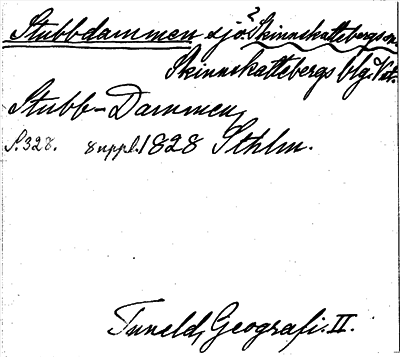 Stubbdammen sjö? Skinnskattebergs sn.
Skinnskattebergs blg. Vst.
Stubb-Dammen,
S. 328. suppl. 1828 Sthlm.
Tuneld, Geografi. II.